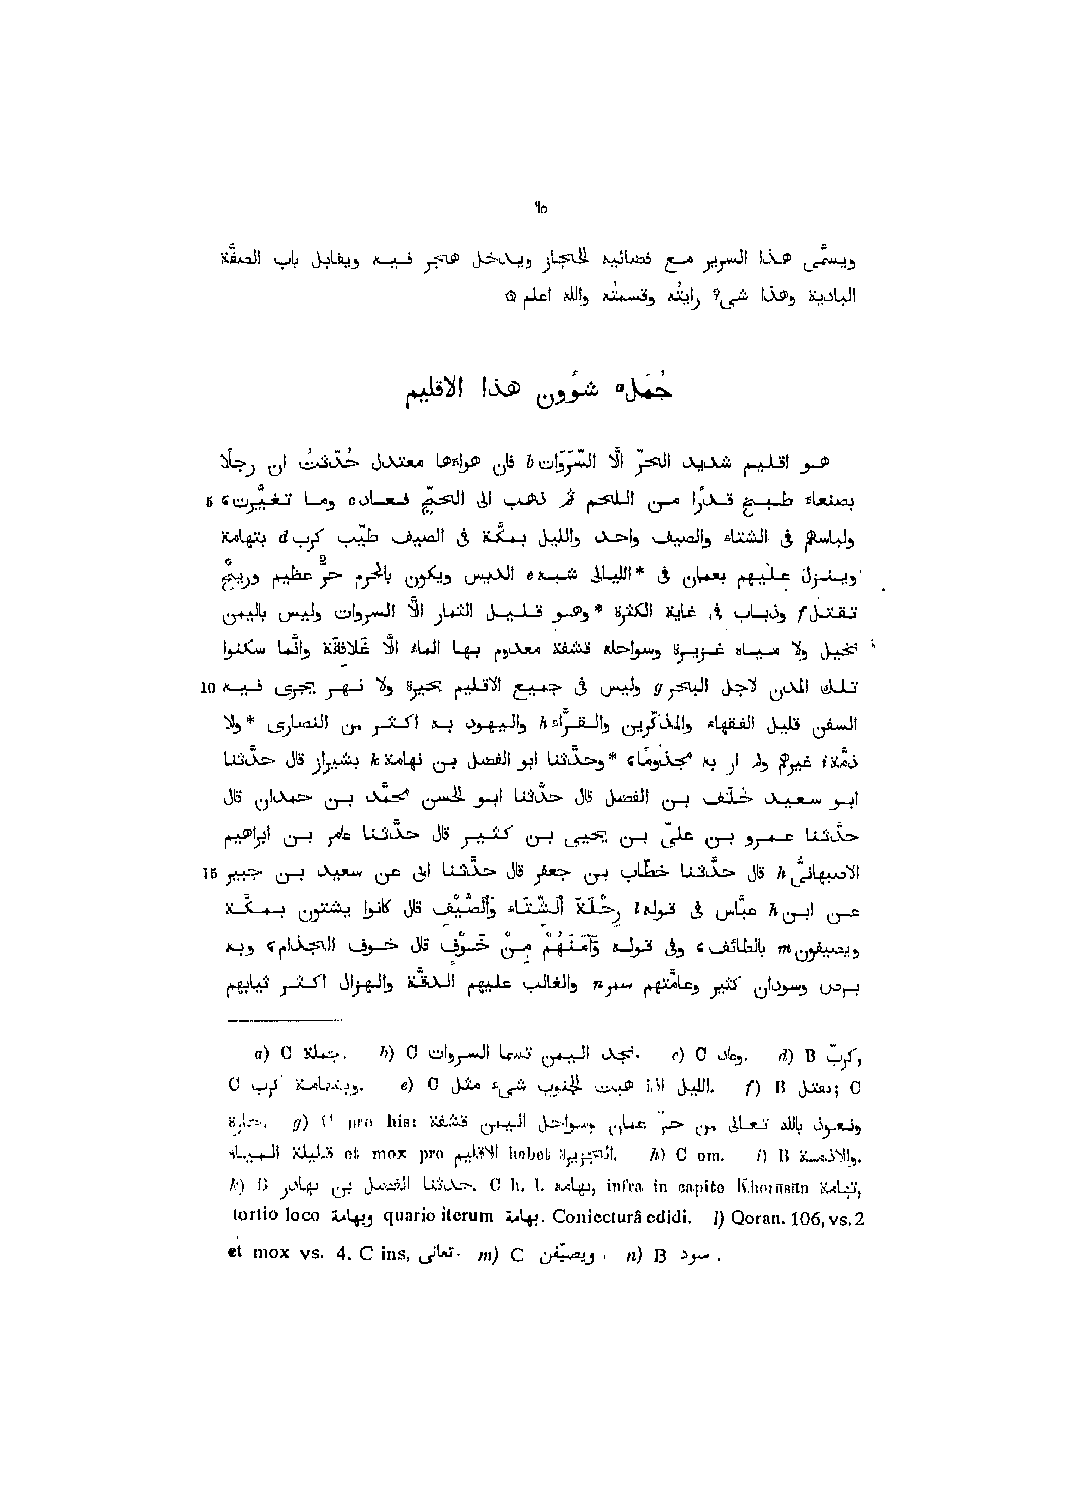 ٩٥
ويسمّى هذا السرير مع فصائيه الحجاز ويدخل هاجر فيه ويقابل باب الصفّة
البادية وهذا شىء رايتُه وقسمتُه والله اعلم ۞
جُمَل a شوُون هذا الاقليم
هو اقليم شديد الحرّ الّا السَّرَوَات b فان هواءها معتدل حُدّثتُ ان رجلًا
بصنعاء طبخ قدرًا من اللحم ثمّ ذهب الى الحجّ فعاد c وما تغيَّرت، 5
ولباسهم فى الشتاء والصيف واحد والليل بمكّة فى الصيف طيّب كرب d بتهامة
وينزل عليهم بعمان فى *الليالى شبه e الدبس ويكون بالحرم حرٌّ عظيم وريحٌ
تقتل f وذباب فى غاية الكثرة *وهو قليل الثمار الّا السروات وليس باليمن
نخيل ولا مياه غزيرة وسواحله قشفة معدوم بها الماء الّا غَلافقَة وانّما سكنوا
تلك المدن لاجل البحر g وليس فى جميع الاقليم بحيرة ولا نهر يجرى فيه 10
السفن قليل الفقهاء والمذكّرين والقرّاء h واليهود به اكثر من النصارى *ولا
ذمّة i غيرهم ولم ار به مجذومًا، *وحدّثنا ابو الفضل بن نهامة k بشيراز قال حدّثنا
ابو سعيد خَلَف بن الفضل قال حدّثنا ابو الحسن محمّد بن حمدان قال
حدّثنا عمرو بن علىّ بن يحيى بن كثير قال حدّثنا عامر بن ابراهيم
الاصبهانىُّ h قال حدّثنا خطّاب بن جعفر قال حدّثنا ابى عن سعيد بن جبير 15
عن ابن h عبّاس فى قوله l رِحْلَةَ ٱلشِّتَاءِ وَٱلصَّيْفِ قال كانوا يشتون بمكّة
ويصيفون m بالطائف، وفى قوله وَآمَنَهُمْ مِنْ خَوْفٍ قال خوف الجذام، وبه
برص وسودان كثير وعامّتهم سمر n والغالب عليهم الدقّة والهزال اكثر ثيابهم
a) C جملة. b) C نجد اليمن تسما السروات. c) C وعاد. d) B كربّ,
C وبتهامة كرب. e) C الليل اذا هبت الجنوب شىء مثل. f) B يعتل; C
g) C pro his: ونعوذ بالله تعالى من حرّ عمان وسواحل اليمن قشفة
قليلة المياه et mox pro الاقليم habet الجزيرة. h) C om. i) B
k) B حدثنا الفضل بن بهادر. C h. l. بهامه, infra in capite Khorasân
tertio loco وبهامة quario iterum بهامة. Coniecturâ edidi. l) Qoran. 106, vs. 2
et mox vs. 4. C ins, تعالى. m) C ويصيّفن. n) B سود.